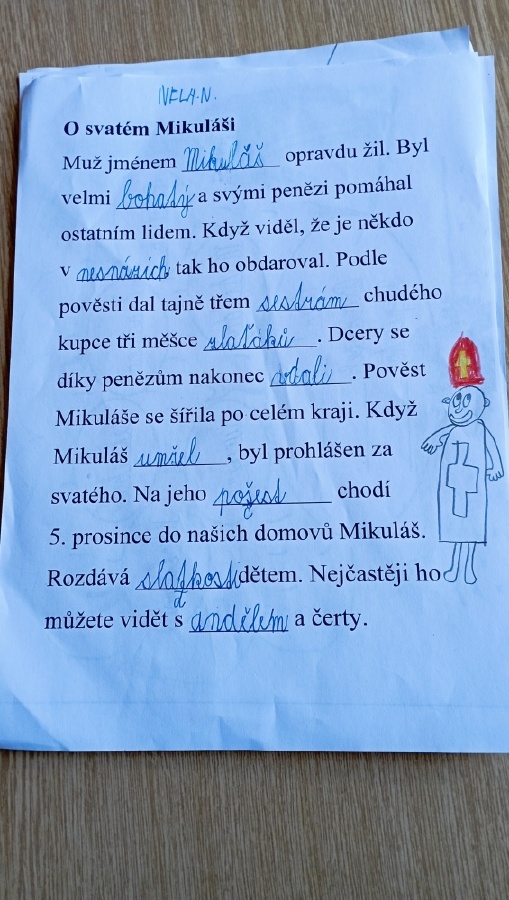 NELA N.
O svatém Mikuláši
Muž jménem Mikuláš opravdu žil. Byl
velmi bohatý a svými penězi pomáhal
ostatním lidem. Když viděl, že je někdo
v nesnázích tak ho obdaroval. Podle
pověsti dal tajně třem sestrám chudého
kupce tři měšce zlaťáků. Dcery se
díky penězům nakonec vdali. Pověst
Mikuláše se šířila po celém kraji. Když
Mikuláš umřel, byl prohlášen za
svatého. Na jeho počest chodí
5. prosince do našich domovů Mikuláš.
Rozdává sladkosti dětem. Nejčastěji ho
můžete vidět s andělem a čerty.